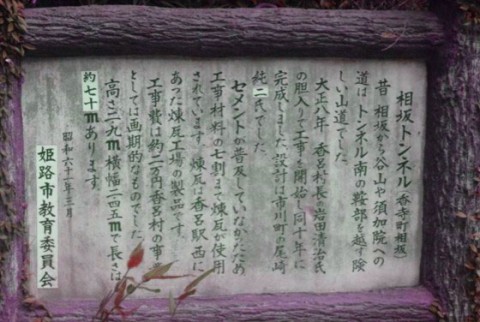 相坂トンネル 香寺町相坂
昔 相坂から谷山や須加院への
道は トンネル南の鞍部を越す険
しい山道でした。
大正八年 香呂村長の岩田清治氏
の胆入りで工事を開始し同十年に
完成しました。設計は市川町の尾崎
純二氏でした。
セメントが普及していなかったため
工事材料の七割まで煉瓦が使用
されています。煉瓦は香呂駅西に
あった煉瓦工場の製品です。
工事費は約二万円香呂村の事業
としては画期的なものでした。
高さ三・九m横幅二・四五mで長さは
約七十mあります。
昭和六十一年三月
姫路市教育委員会